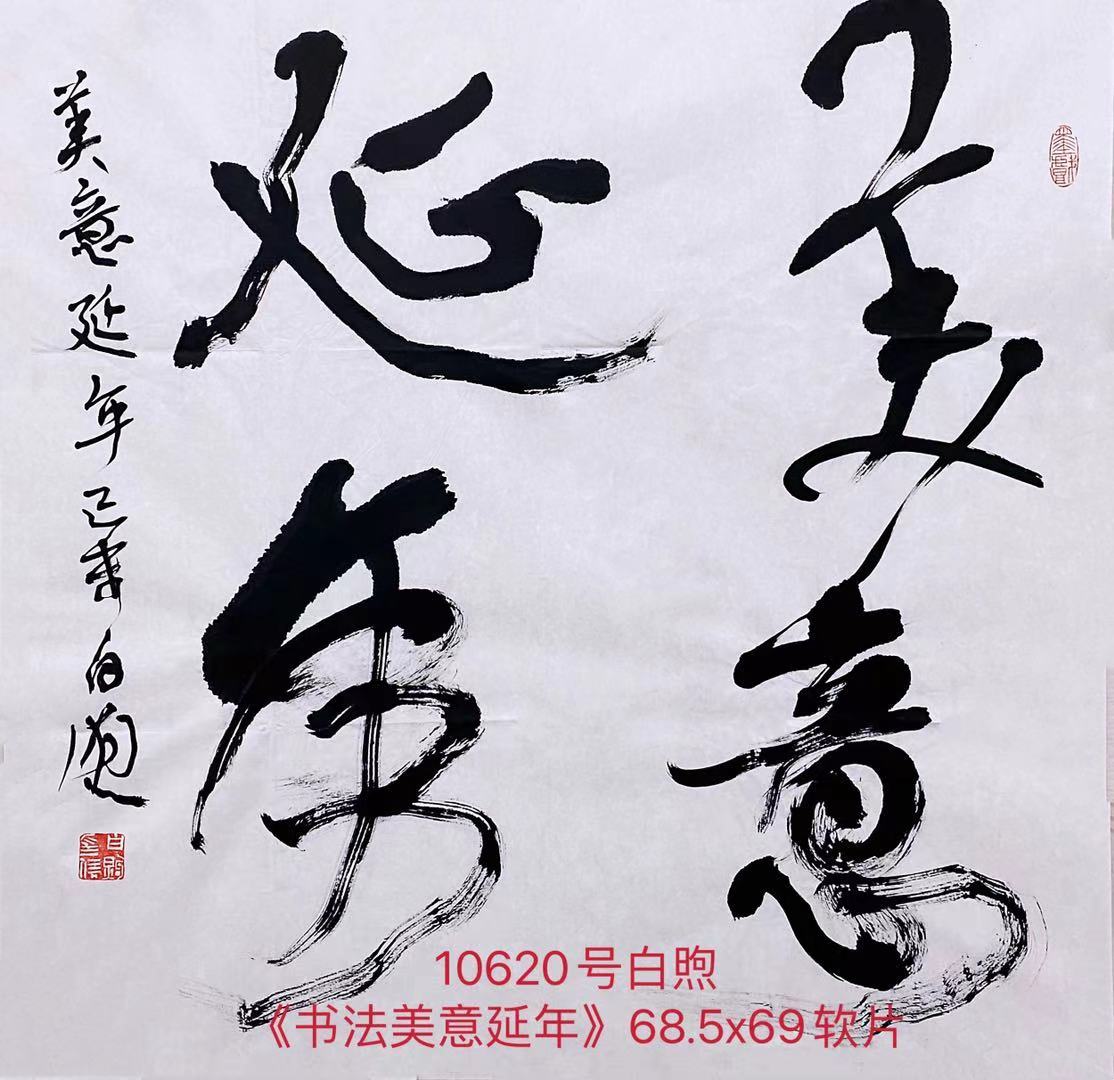 美意
延年
美意延年 白煦
10620号白煦
《书法美意延年》68.5x69软片